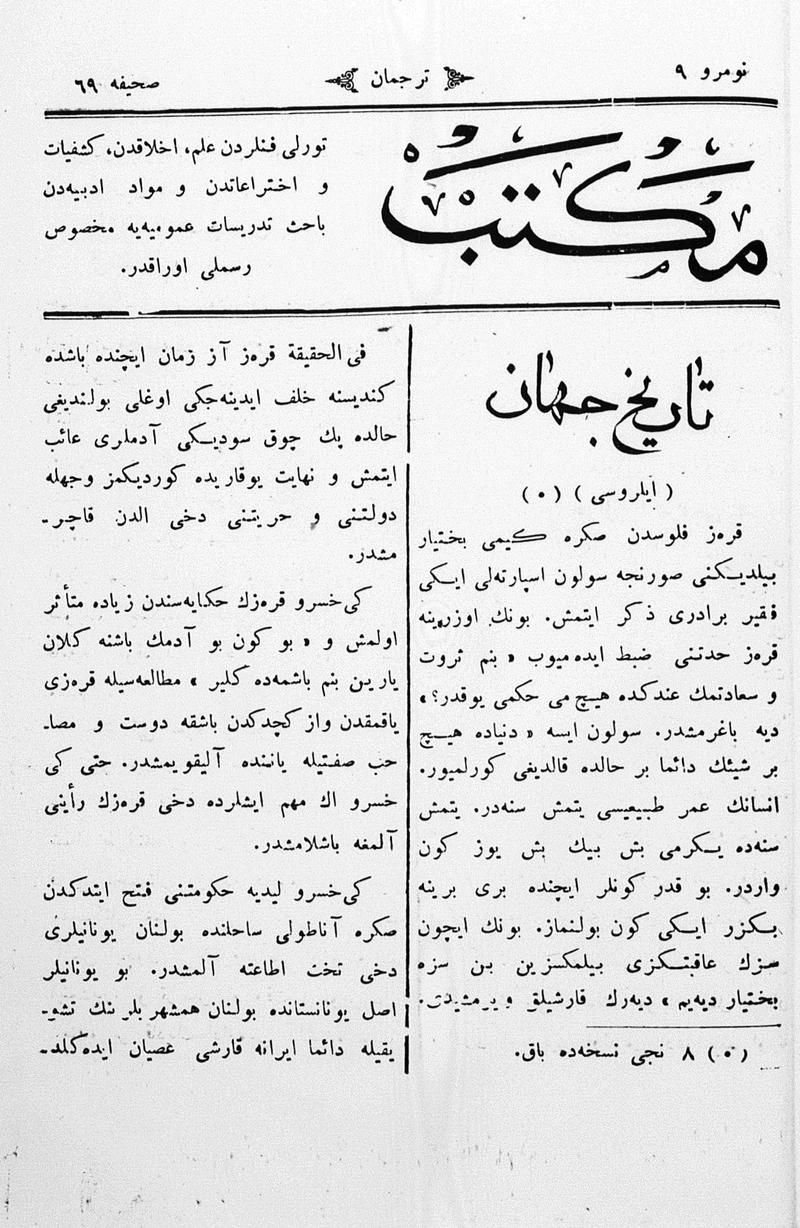 نومرو ٩
ترجمان
صحیفه ٦٩
مكتب
تورلی فنلردن علم، اخلاقدن، كشفیات
و اختراعاتدن و مواد ادبیه‌دن
باحث تدریسات عمومیه‌یه مخصوص
رسملی اوراقدر.
تاریخ جهان
( ایلروسی ) (٠)
قره‌ز فلوسدن صكره كیمی بختیار
بیلدیكنی صورنجه سولون اسپارته‌لی ایكی
فقیر برادری ذكر ایتمش. بونك اوزرینه
قره‌ز حدتنی ضبط ایده‌میوب « بنم ثروت
و سعادتمك عندكده هیچ می حكمی یوقدر؟ »
دیه باغرمشدر. سولون ایسه « دنیاده هیچ
بر شیئك دائما بر حالده قالدیغی كورلمیور.
انسانك عمر طبیعیسی یتمش سنه‌در. یتمش
سنه‌ده یكرمی بش بیك بش یوز كون
واردر. بو قدر كونلر ایچنده بری برینه
بكزر ایكی كون بولنماز. بونك ایچون
سزك عاقبتكزی بیلمكسزین بن سزه
بختیار دیه‌یم » دیه‌رك قارشیلق ویرمشیدی.
(٠) ٨ نجی نسخه‌ده باق.
فی الحقیقة قره‌ز آز زمان ایچنده باشده
كندیسنه خلف ایدینه‌جكی اوغلی بولندیغی
حالده پك چوق سودیكی آدملری غائب
ایتمش و نهایت یوقاریده كوردیكمز وجهله
دولتنی و حریتنی دخی الدن قاچر-
مشدر.
كی‌خسرو قره‌زك حكایه‌سندن زیاده متأثر
اولمش و « بو كون بو آدمك باشنه كلان
یارین بنم باشمه‌ده كلیر » مطالعه‌سیله قره‌زی
یاقمقدن واز كچدكدن باشقه دوست و مصا-
حب صفتیله یاننده آلیقویمشدر. حتی كی
خسرو اك مهم ایشلرده دخی قره‌زك رأینی
آلمغه باشلامشدر.
كی‌خسرو لیدیه حكومتنی فتح ایتدكدن
صكره آناطولی ساحلنده بولنان یونانیلری
دخی تحت اطاعته آلمشدر. بو یونانیلر
اصل یونانستانده بولنان همشهریلرینك تشو-
یقیله دائما ایرانه قارشی عصیان ایده‌كلد-